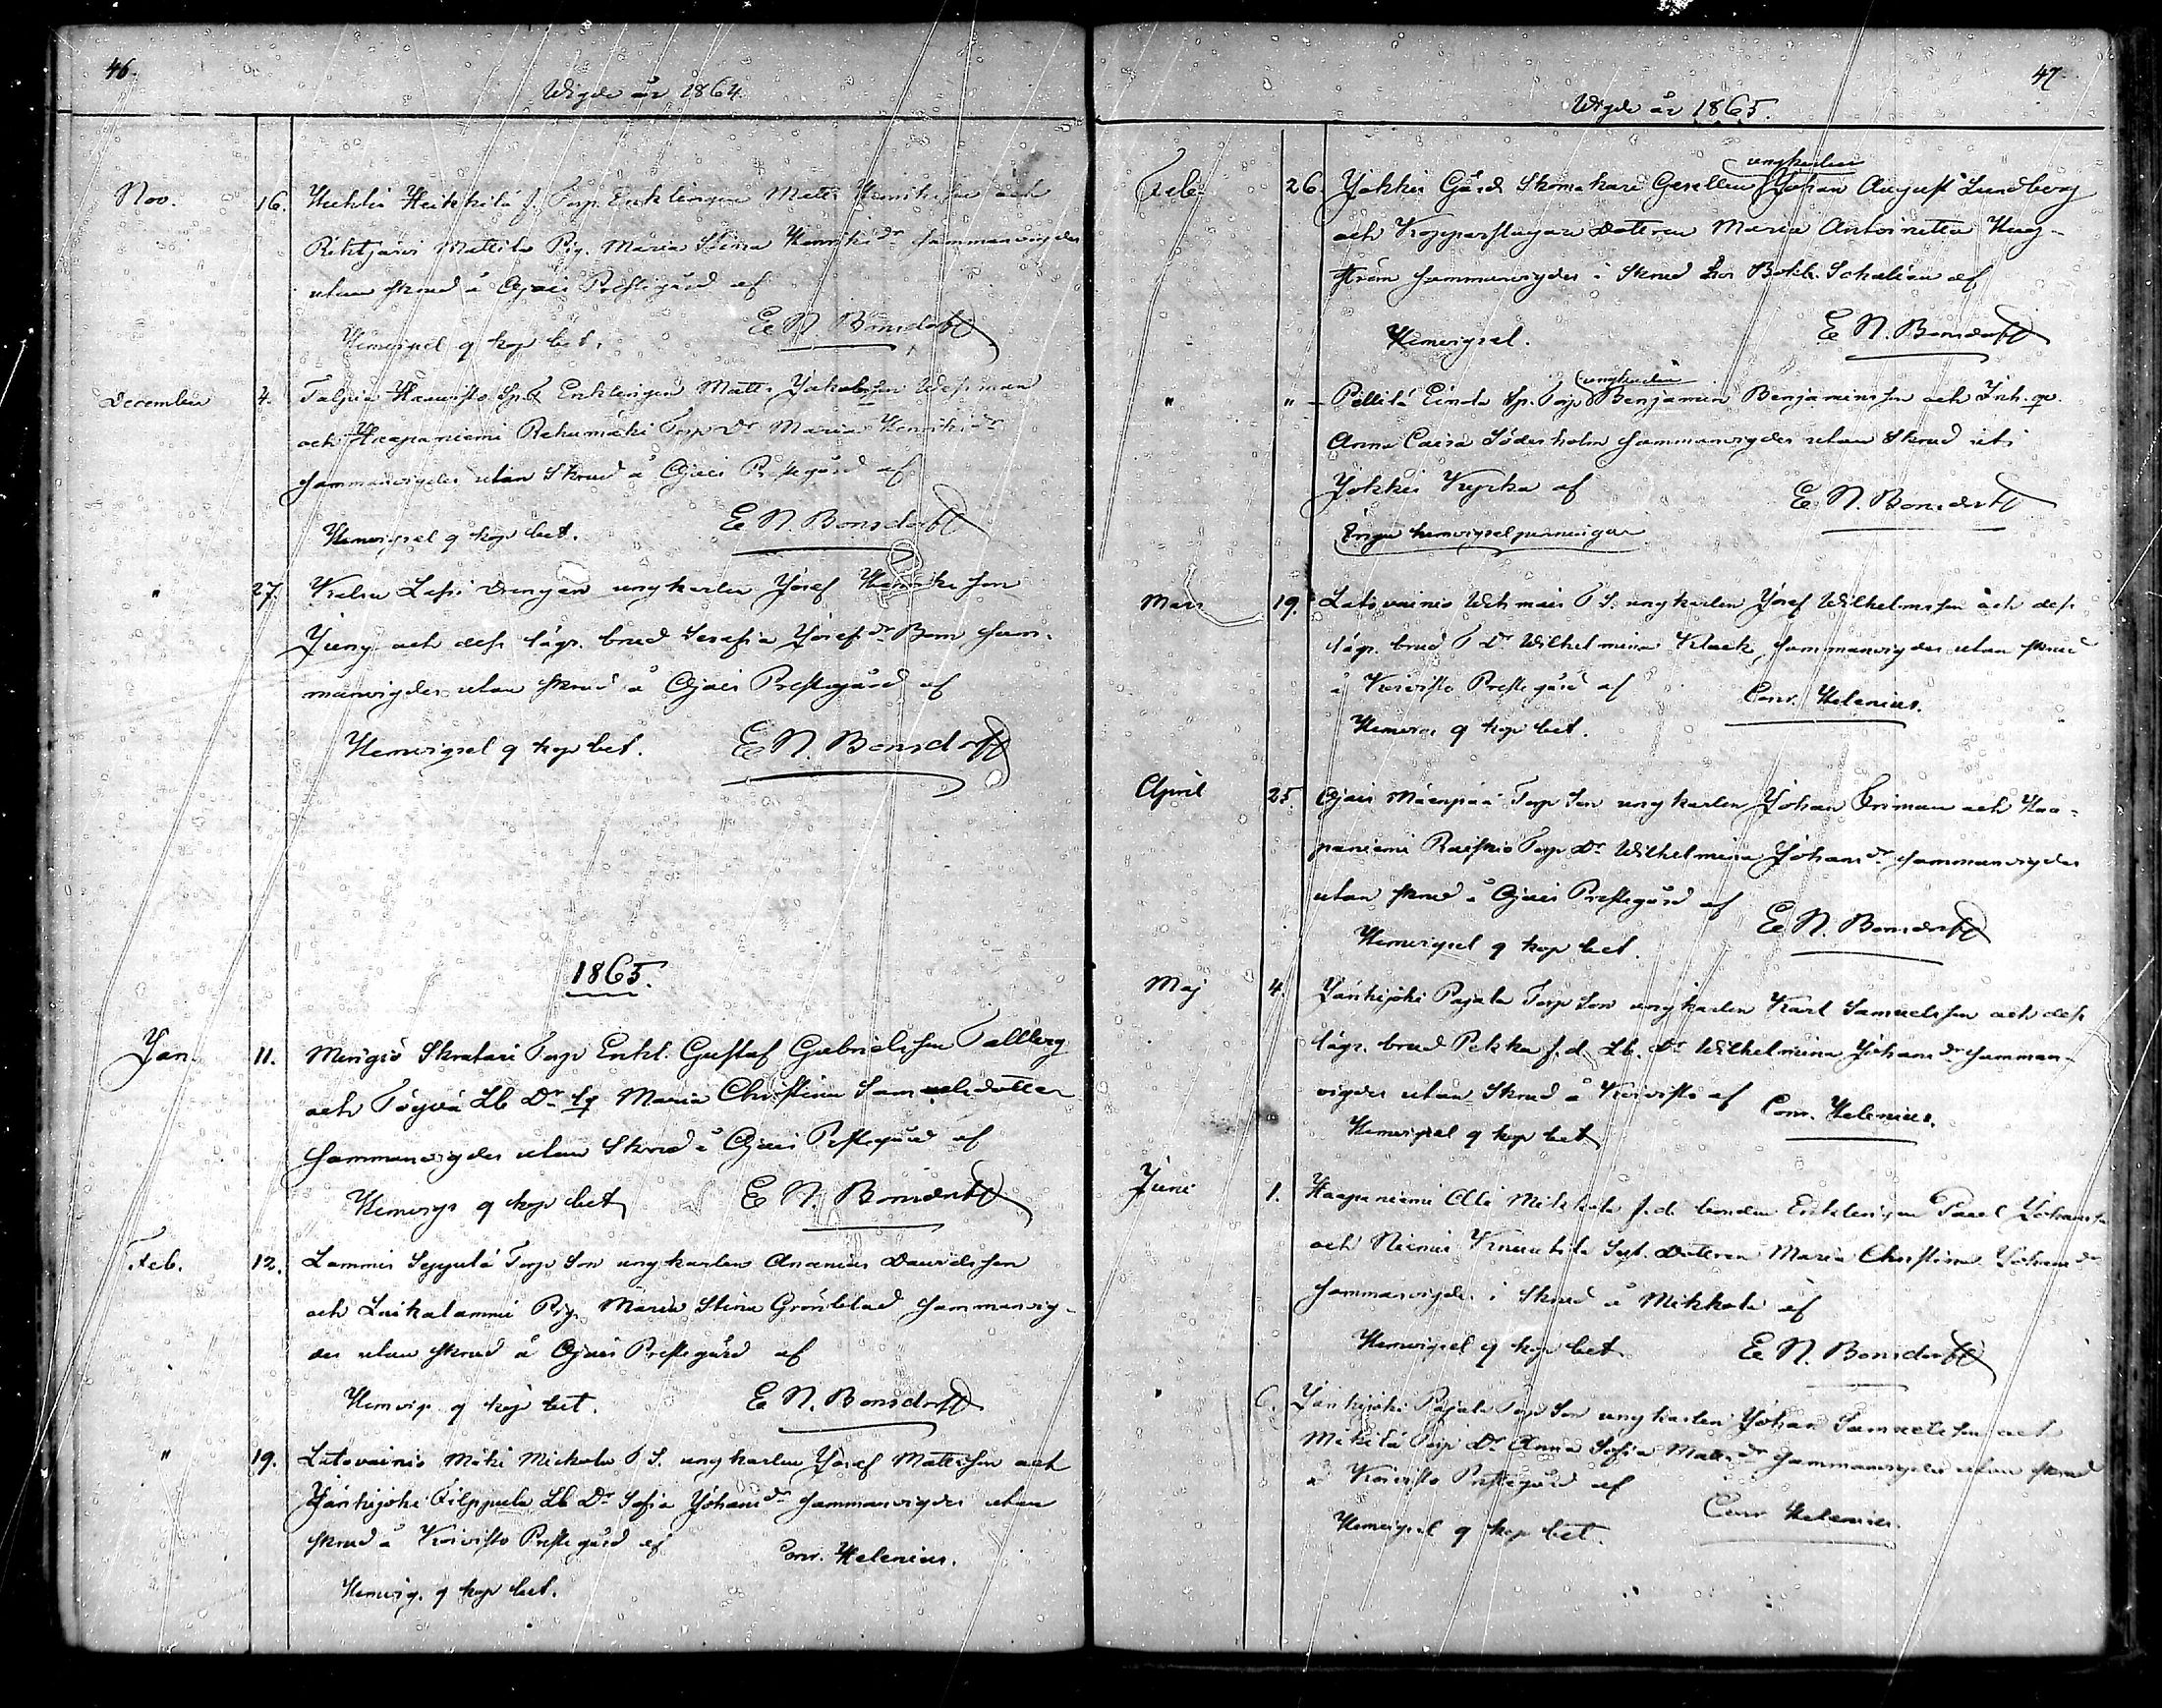 46.
Wigde år 1864
Nov. 16. Huhtia Heikkilä f. Torp. Enklingen Matts Henriksson och
Rehtijärvi Mattila Pig. Maria Stina Henriksdr sammanvigdes
utan skrud å Ojais Prestegård af
Hemvigsel o kop bet. E. N. Bonsdorff
December 4. Talpia Haavisto Enklingen Matts Jakobsson Wessman
och Haapaniemi Rehumäki Torp Dr Maria Henriksdr
sammanvigdes utan Skrud å Ojais Prestegård af
Hemvigsel o kop bet. E. N. Bonsdorff
" 27. Lassi Drengen ungkarlen Josef Henriksson
Ljung och dess lägr. brud Serafia Josefsdr Bom sam-
manvigdes utan skrud å Ojais Prestegård af
Hemvigsel o kop bet. E. N. Bonsdorff
1865.
Jan. 11. Mingiö Skratari Torp Enkl. Gustaf Gabrielsson Tallberg
och Töyrä Lb Dr Maria Christina Samuelsdotter
sammanvigdes utan Skrud å Ojais Prestegård af
Hemvigs o kop bet E. N. Bonsdorff
Feb. 12. Lammi Seppälä Torp Son ungkarlen Ananias Davidsson
och Luikalammi Pig. Maria Stina Grönblad sammanvig-
des utan skrud å Ojais Prestegård af
Hemvigs o kop bet. E. N. Bonsdorff
" 19. Latovainio Mäki Mickola T S. ungkarlen Josef Mattsson och
Jänhijoki Filppula Lb Dr Sofia Johansdr sammanvigdes utan
skrud å Koivisto Prestegård af Conr. Helenius.
Hemvig. o kop bet.
47.
Wigde år 1865.
Feb. 26. Jokkis Gård Skomakare Gesellen ungkarlen Johan August Lundberg
och Kopparslagare Dottren Maria Antoinetta Hag-
ström sammanvigdes i Skrud hos Bokh. Schalien af
Hemvigsel. E. N. Bonsdorff
" " Pellilä Eindo Sp. Torp ungkarlen Benjamin Benjaminsson och Inh. qv.
Anna Caisa Söderholm sammanvigdes utan Skrud uti
Jokkis Kyrka af E. N. Bonsdorff
Inga hemvigselpenningar
Mars 19. Latovainio Wehmais T S. ungkarlen Josef Wilhelmsson och dess
lägr. brud T Dr Wilhelmina Klack, sammanvigdes utan skrud
å Koivisto Prestegård af Conr. Helenius.
Hemvigs o kop bet.
April 25. Ojais Mäenpää Torp Son ungkarlen Johan Friman och Haa-
paniemi Raisnio Torp Dr Wilhelmina Johansdr sammanvigdes
utan skrud å Ojais Prestegård af E. N. Bonsdorff
Hemvigsel o kop bet.
Maj 4. Jänhijoki Pajala Torp Son ungkarlen Karl Samuelsson och dess
lägr. brud Pekka f. d. Lb. Dr Wilhelmina Johansdr samman-
vigdes utan Skrud å Koivisto af Conr. Helenius.
Hemvigsel o kop bet
Juni 1. Haapaniemi Alli Mikkola f. d. bonden Enklingen Pavel Johansson
och Niemis Knuutila Dottren Maria Christina Johansdr
sammanvigdes i Skrud å Mikkola af
Hemvigsel o kop bet E. N. Bonsdorff
" 6. Jänhijoki Pajala Torp Son ungkarlen Johan Samuelsson och
Mikilä Torp Dr Anna Sofia Mattsdr sammanvigdes utan skrud
å Koivisto Prestegård af Conr Helenius.
Hemvigsel o kop bet.